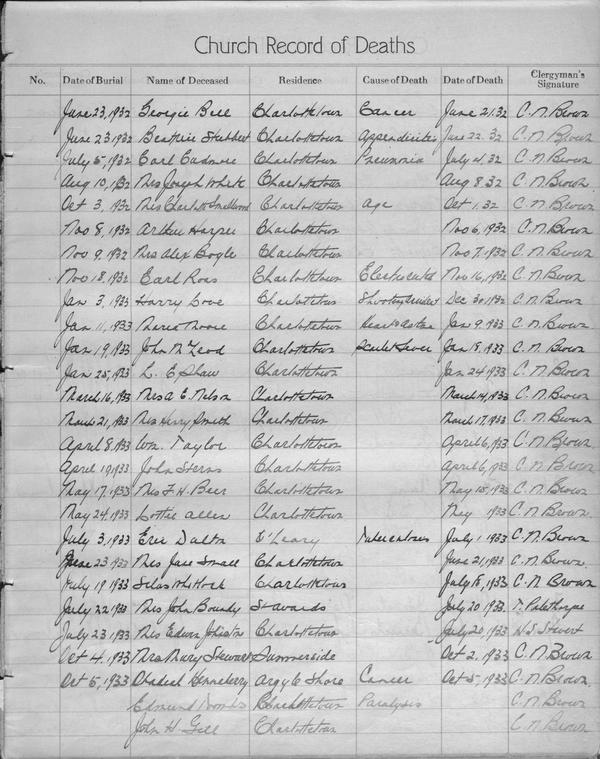 Church Record of Deaths
No. Date of Burial Name of Deceased Residence Cause of Death Date of Death Clergyman's Signature
June 23, 1932 Georgie Bell Charlottetown Cancer June 21. 32 C. N. Brown
June 23 1932 Beatrice Charlottetown Appendicites June 22. 32 C. N. Brown
July 5, 1932 Earl Cudmore Charlottetown Pneumnia July 4. 32 C. N. Brown
Aug 10, 1932 Mrs Joseph White Charlottetown Aug 8 32 C. N. Brown
Oct 3, 1932 Mrs Charlotte Smallwood Charlottetown age Oct 1. 32 C. N. Brown
Nov 8, 1932 Arthur Harper Charlottetown Nov 6, 1932 C. N. Brown
Nov 9, 1932 Mrs Alex Boyle Charlottetown Nov 7, 1932 C. N. Brown
Nov 18, 1932 Earl Ross Charlottetown Electrocuted Nov 16, 1932 C. N. Brown
Jan 3, 1933 Harry Love Charlottetown Shooting Dec 30, 1932 C. N. Brown
Jan 11, 1933 Moore Charlottetown Jan 9 1933 C. N. Brown
Jan 19, 1933 John McLeod Charlottetown Scarlet Fever Jan 18, 1933 C. N. Brown
Jan 25, 1933 L. E Shaw Charlottetown Jan 24 1933 C. N. Brown
March 16, 1933 Mrs A E. Nelson Charlottetown March 14, 1933 C. N. Brown
March 21, 1933 Mrs Henry Smith Charlottetown March 17, 1933 C. N. Brown
April 8, 1933 Wm. Taylor Charlottetown April 6, 1933 C. N. Brown
April 1933 John Sterns Charlottetown April 6, 1933 C. N. Brown
May 17, 1933 Mrs F. H. Beer Charlottetown May 15, 1933 C. N. Brown
May 24, 1933 Lottie Allen Charlottetown May 1933 C. N. Brown
July 3, 1933 Eric Dalton O'Leary July 1 1933 C. N. Brown
June 23 1933 Mrs Jane Small Charlottetown June 21, 1933 C. N. Brown.
July 19 1933 Silas Charlottetown July 18, 1933 C. N. Brown
July 22 1933 Mrs John Bound July 20 1933. Palethorpe
July 23 1933 Mrs Edwin Johnston Charlottetown July 20, 1933 H. S. Stewart
Oct 4, 1933 Mrs Mary Stewart Summerside Oct 2, 1933 C. N. Brown
Oct 5, 1933 Henneberry Argyle Shore Cancer Oct 5- 1933 C. N. Brown.
Edmund Charlottetown Paralysis C. N. Brown
John H. Gill Charlottetown C. N. Brown